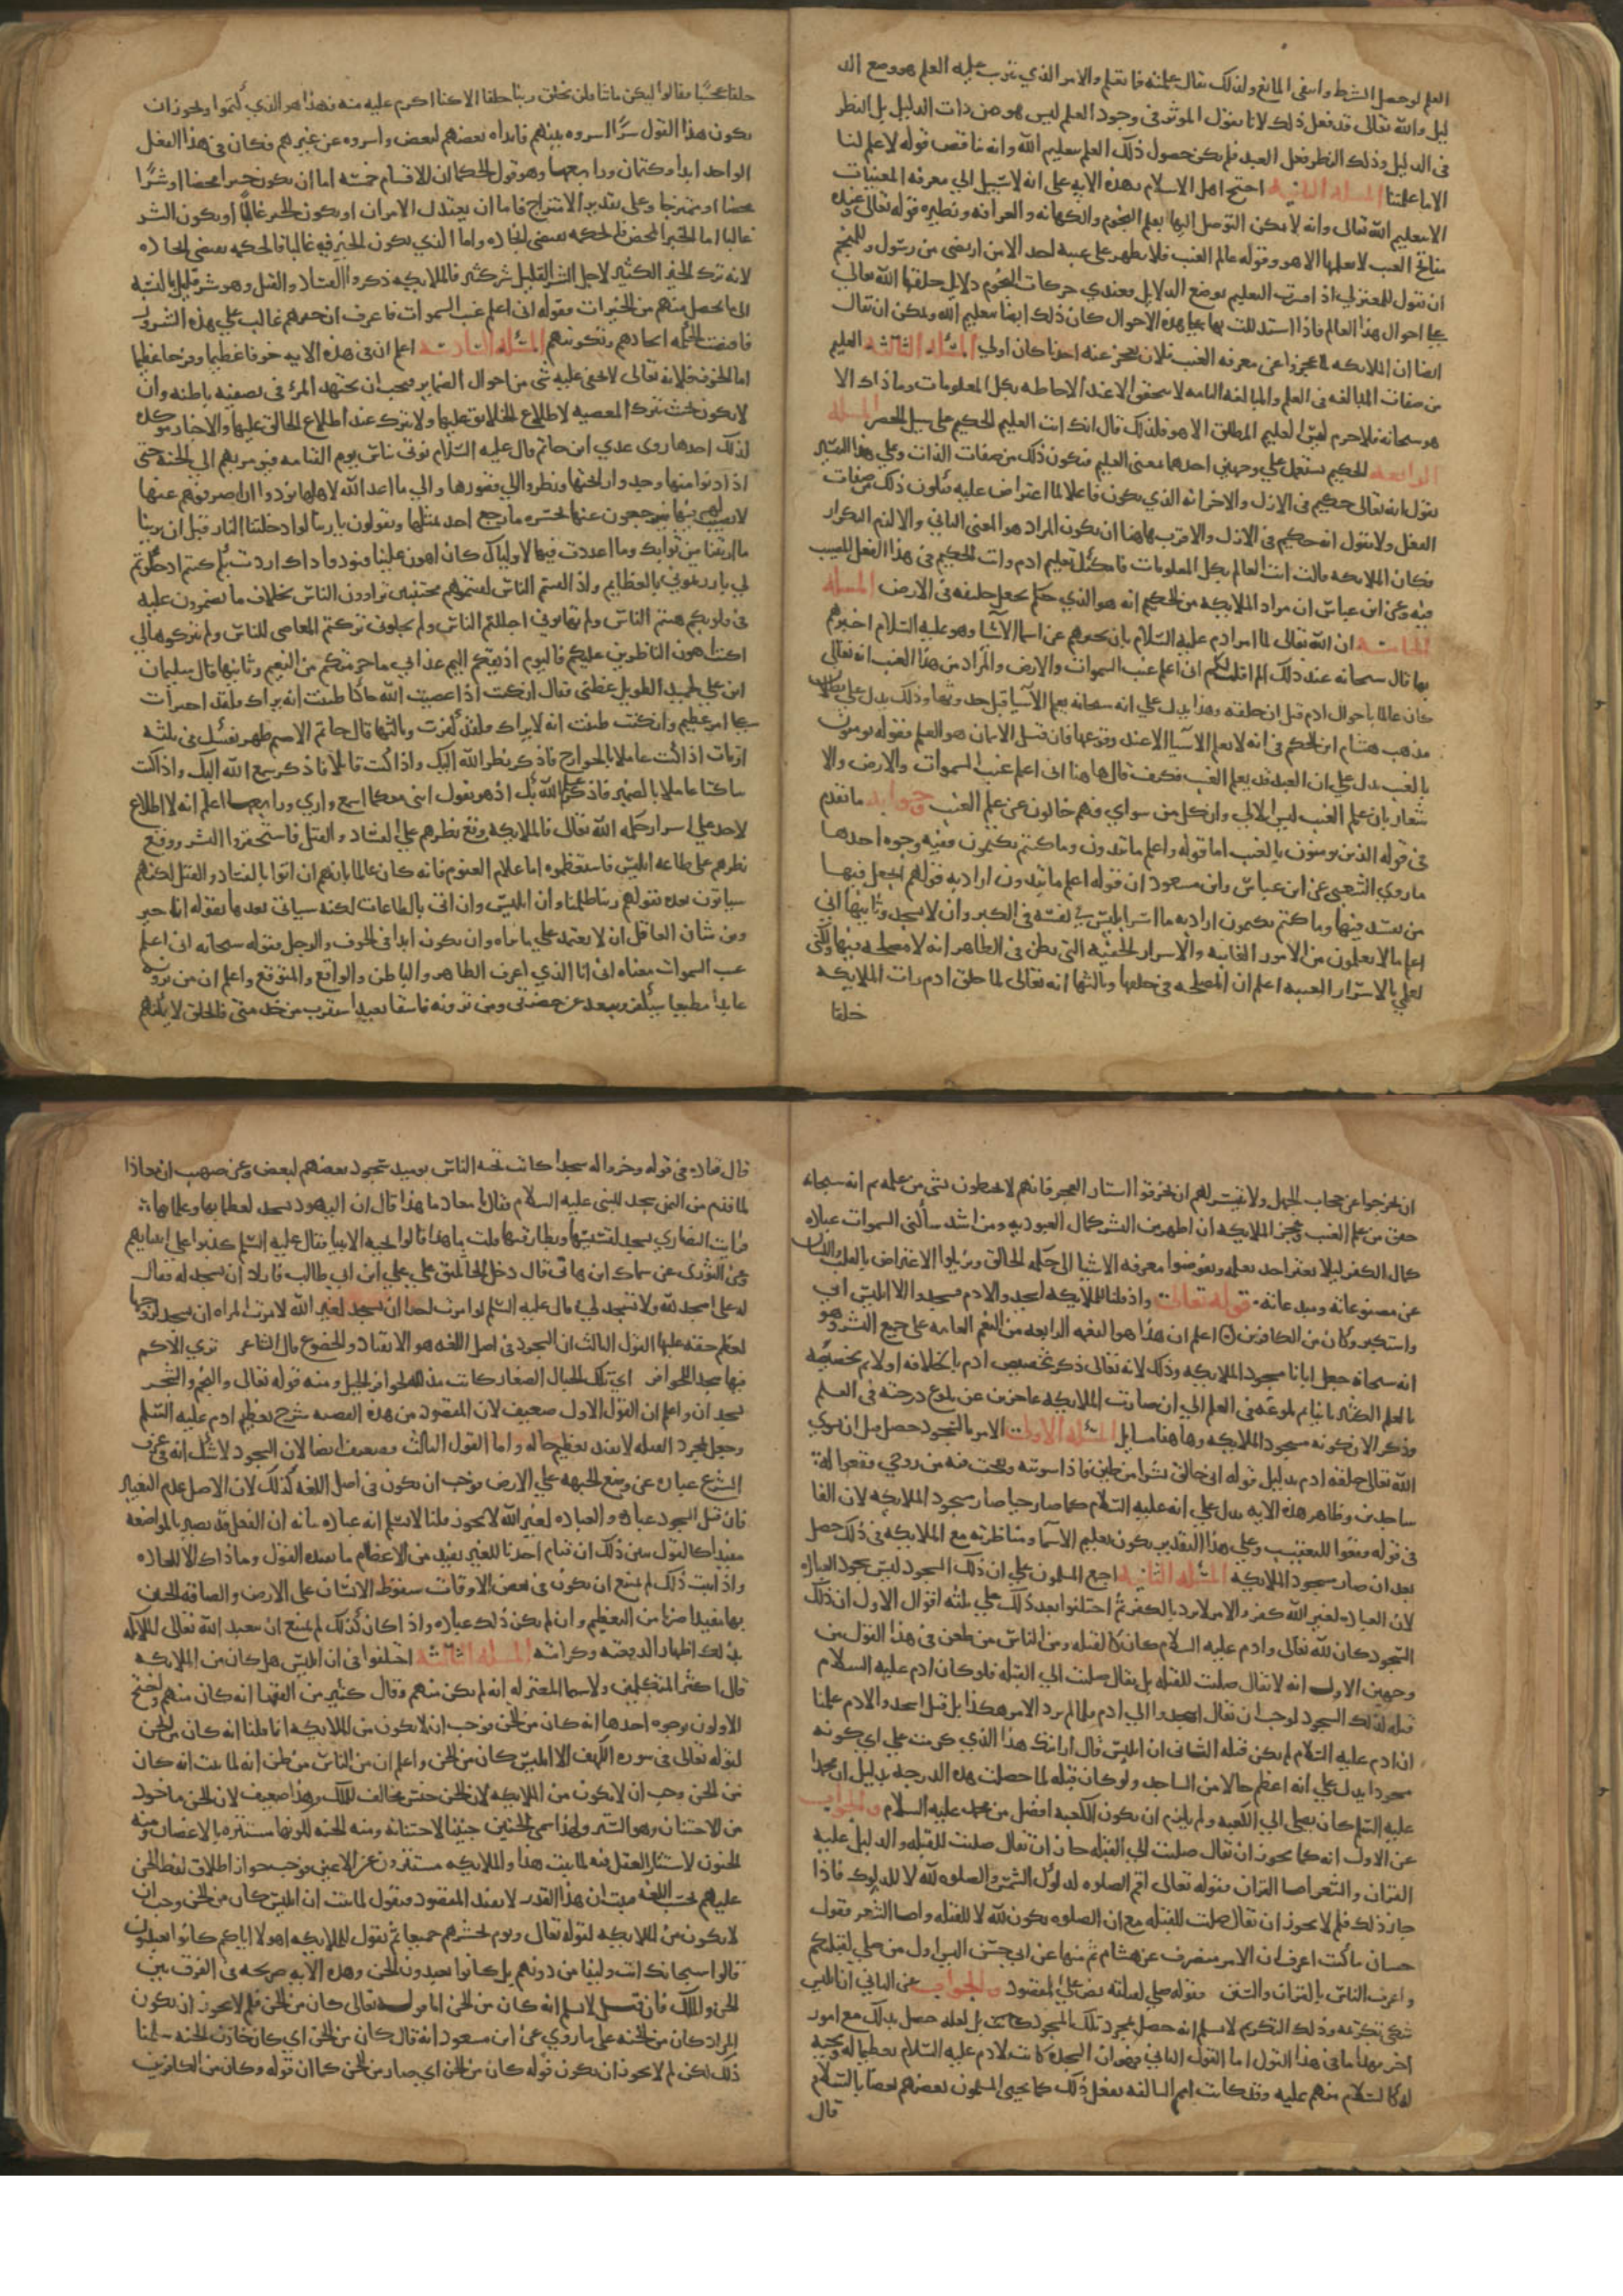 العلم لو حصل الشرط وانتفى المانع ولذلك يقال علمته فما تعلم والامر الذي يترتب عليه العلم هو وضع الد
ليل والله تعالى قد فعل ذلك لانا نقول الموثر في وجود العلم ليس هو من ذات الدليل بل النظر
في الدليل وذلك النظر فعل العبد فلم يكن حصول ذلك العلم بتعليم الله وانه يناقض قوله لا علم لنا
الا ما علمتنا المسله الثانية احتج اهل الاسلام بهذه الايه على انه لا سبيل الي معرفه المغيبات
الا بتعليم الله تعالى وانه لا يمكن التوصل اليها بعلم النجوم والكهانه والعرافه ونظيره قوله تعالى وعنده
مفاتح الغيب لا يعلمها الا هو وقوله عالم الغيب فلا يظهر على غيبه احد الا من ارتضى من رسول وللمنجم
ان يقول للمعتزلي اذا فسرت التعليم بوضع الدلايل فعندي حركات النجوم دلايل خلقها الله تعالى
على احوال هذا العالم فاذا استدللت بها على هذه الاحوال كان ذلك ايضا بتعليم الله ويمكن ان يقال
ايضا ان الملايكه لما عجزوا عن معرفه الغيب فلان يعجز عنه احدنا كان اولي المسله الثالثه العليم
من صفات المبالغه في العلم والمبالغه التامه لا يتحقق الا عند الاحاطه بكل المعلومات وما ذاك الا
هو سبحانه فلا جرم ليس العليم المطلق الا هو فلذلك قال انك انت العليم الحكيم على سبيل الحصر المسله
الرابعه الحكيم يستعمل على وجهين احدهما بمعنى العليم فيكون ذلك من صفات الذات وعلى هذا التفسير
نقول انه تعالى حكيم في الازل والاخر انه الذي يكون فاعلا لما لا اعتراض عليه فيكون ذلك من صفات
الفعل ولا نقول انه حكيم في الازل والاقرب هاهنا ان يكون المراد هو المعنى الثاني والا لزم التكرار
فكان الملايكه قالت انت العالم بكل المعلومات فامكنك تعليم ادم وانت الحكيم في هذا الفعل المصيب
فيه وعن ابن عباس ان مراد الملايكه من الحكيم انه هو الذي حكم بجعل خليفه في الارض المسله
الخامسه ان الله تعالى لما امر ادم عليه السلام بان يخبرهم عن اسما الاشيا وهو عليه السلام اخبرهم
بها قال سبحانه عند ذلك الم اقل لكم اني اعلم غيب السموات والارض والمراد من هذا الغيب انه تعالى
كان عالما باحوال ادم قبل ان خلقه وهذا يدل على انه سبحانه يعلم الاشيا قبل حدوثها وذلك يدل على بطلان
مذهب هشام ابن الحكم في انه لا يعلم الاشيا الا عند وقوعها فان قيل الايمان هو العلم فقوله يومنون
بالغيب يدل على ان العبد قد يعلم الغيب فكيف قال هاهنا اني اعلم غيب السموات والارض والا
شعار بان علم الغيب ليس الا لي وان كل من سواي فهم خالون عن علم الغيب وجوابه ما تقدم
في قوله الذين يومنون بالغيب اما قوله واعلم ما تبدون وما كنتم تكتمون ففيه وجوه احدها
ما روى الشعبي عن ابن عباس وابن مسعود ان قوله اعلم ما تبدون اراد به قولهم اتجعل فيها
من يفسد فيها وما كنتم تكتمون اراد به ما اسر ابليس في نفسه من الكبر وان لا يسجد وثانيها اني
اعلم ما لا تعلمون من الامور الغايبه والاسرار الخفيه التي يظن في الظاهر انه لا مصلحه فيها ولكني
لعلمي بالاسرار الغيبيه اعلم ان المصلحه في خلقها وثالثها انه تعالى لما خلق ادم رات الملايكه
خلقا
خلقا عجيبا فقالوا ليكن ما شا فلن يخلق ربنا خلقا الا كنا اكرم عليه منه فهذا هو الذي كتموا ويجوز ان
يكون هذا القول سرا اسروه بينهم فابداه بعضهم لبعض واسروه عن غيرهم فكان في هذا الفعل
الواحد ابدا وكتمان ورابعها وهو قول الحكما ان الاقسام خمسه اما ان يكون خيرا محضا او شرا
محضا او ممتزجا وعلى تقدير الامتزاج فاما ان يعتدل الامران او يكون الخير غالبا او يكون الشر
غالبا اما الخير المحض فالحكمه تقتضي ايجاده واما الذي يكون الخير فيه غالبا فالحكمه تقتضي ايجاده
لانه ترك الخير الكثير لاجل الشر القليل شر كثير فالملايكه ذكروا الفساد والقتل وهو شر قليل بالنسبه
الى ما يحصل منهم من الخيرات فقوله اني اعلم غيب السموات فاعرف ان خيرهم غالب على هذه الشرور
فاقتضت الحكمه ايجادهم وتكوينهم المسله السادسه اعلم ان في هذه الايه خوفا عظيما وفرحا عظيما
اما الخوف فلانه تعالى لا يخفى عليه شي من احوال الضماير فيجب ان يجتهد المرء في تصفيه باطنه وان
لا يكون بحيث يترك المعصيه لاطلاع الخلايق عليها ولا يترك عند اطلاع الخالق عليها والاخبار موكده
لذلك احدها روى عدي ابن حاتم قال عليه السلام يوتى بناس يوم القيامه فيومر بهم الي الجنه حتى
اذا دنوا منها ووجدوا رايحتها ونظروا الي قصورها والي ما اعد الله لاهلها نودوا ان اصرفوهم عنها
لا نصيب لهم فيها فيرجعون عنها بحسره ما رجع احد بمثلها ويقولون يا ربنا لو ادخلتنا النار قبل ان ترينا
ما اريتنا من ثوابك وما اعددت فيها لاوليايك كان اهون علينا فنودوا ذاك اردت بكم كنتم اذا خلوتم
لي بارزتموني بالعظايم واذا لقيتم الناس لقيتموهم مخبتين تراوون الناس بخلاف ما تضمرون عليه
في قلوبكم هبتم الناس ولم تهابوني اجللتم الناس ولم تجلوني تركتم المعاصي للناس ولم تتركوها لي
اكنت اهون الناظرين عليكم فاليوم اذيقكم اليم عذابي مما حرمتكم من النعيم وثانيها قال سليمان
ابن علي لحميد الطويل عظني فقال ان كنت اذا عصيت الله خاليا ظننت انه يراك فلقد اجترات
على امر عظيم وان كنت ظننت انه لا يراك فلقد كفرت وثالثها قال حاتم الاصم طهر نفسك في ثلثه
اوقات اذا كنت عاملا بالجوارح فاذكر نظر الله اليك واذا كنت قايلا فاذكر سمع الله اليك واذا كنت
ساكتا عاملا بالضمير فاذكر علم الله بك اذ هو يقول انني معكما اسمع واري ورابعها اعلم انه لا اطلاع
لاحد على اسرار حكمه الله تعالى فالملايكه وقع نظرهم على الفساد والقتل فاستحقروا البشر ووقع
نظرهم على طاعه ابليس فاستعظموه اما علام الغيوب فانه كان عالما بانهم ان اتوا بالفساد والقتل لكنهم
سياتون بعده بقولهم ربنا ظلمنا وان ابليس وان اتى بالطاعات لكنه سياتي بعدها بقوله انا خير
ومن شان العاقل ان لا يعتمد على ما يراه وان يكون ابدا في الخوف والوجل فقوله سبحانه اني اعلم
غيب السموات معناه اني انا الذي اعرف الظاهر والباطن والواقع والمتوقع واعلم ان من ترونه
عابدا مطيعا سيكفر ويبعد عن حضرتي ومن ترونه فاسقا بعيدا سيقرب من خدمتي فالخلق لا يمكنهم
ان يخرجوا عن حجاب الجهل ولا يتيسر لهم ان يخرقوا استار العجز فانهم لا يحيطون بشي من علمه ثم انه سبحانه
حقق من علم الغيب وعجز الملايكه ان اظهر من البشر كمال العبوديه ومن اشد ساكني السموات عباده
كمال الكفر ليلا يغتر احد بعمله ويفوضوا معرفه الاشيا الى حكمه الخالق ويزيلوا الاعتراض بالقلب واللسان
عن مصنوعاته ومبدعاته قوله تعالى واذ قلنا للملايكه اسجدوا لادم فسجدوا الا ابليس ابى
واستكبر وكان من الكافرين اعلم ان هذا هو النعمه الرابعه من النعم العامه على جميع البشر وهو
انه سبحانه جعل ابانا مسجود الملايكه وذلك لانه تعالى ذكر تخصيص ادم بالخلافه اولا ثم تخصيصه
بالعلم الكثير ثانيا ثم بلوغه في العلم الي ان صارت الملايكه عاجزين عن بلوغ درجته في العلم
وذكر الان كونه مسجود الملايكه وهاهنا مسايل المسله الاولى الامر بالسجود حصل قبل ان يسوي
الله تعالى خلقه ادم بدليل قوله اني خالق بشرا من طين فاذا سويته ونفخت فيه من روحي فقعوا له
ساجدين وظاهر هذه الايه يدل على انه عليه السلام كما صار حيا صار مسجود الملايكه لان الفا
في قوله فقعوا للتعقيب وعلى هذا التقدير يكون تعليم الاسما ومناظرته مع الملايكه في ذلك حصل
بعد ان صار مسجود الملايكه المسله الثانيه اجمع المسلمون على ان ذلك السجود ليس سجود العباده
لان العباده لغير الله كفر والامر لا يرد بالكفر ثم اختلفوا بعد ذلك على ثلثه اقوال الاول ان ذلك
السجود كان لله تعالى وادم عليه السلام كان كالقبله ومن الناس من طعن في هذا القول من
وجهين الاول انه لا يقال صليت للقبله بل يقال صليت الي القبله فلو كان ادم عليه السلام
قبله لذلك السجود لوجب ان يقال اسجدوا الي ادم فلما لم يرد الامر هكذا بل قيل اسجدوا لادم علمنا
ان ادم عليه السلام لم يكن قبله الثاني ان ابليس قال ارايتك هذا الذي كرمت علي اي كونه
مسجودا يدل على انه اعظم حالا من الساجد ولو كان قبله لما حصلت هذه الدرجه بدليل ان محمدا
عليه السلام كان يصلي الي الكعبه ولم يلزم ان يكون الكعبه افضل من محمد عليه السلام والجواب
عن الاول انه كما يجوز ان يقال صليت الي القبله جاز ان يقال صليت للقبله والدليل عليه
القران والشعر اما القران فقوله تعالى اقم الصلوه لدلوك الشمس والصلوه لله لا للدلوك فاذا
جاز ذلك فلم لا يجوز ان يقال صليت للقبله مع ان الصلوه يكون لله لا للقبله واما الشعر فقول
حسان ما كنت اعرف ان الامر منصرف عن هشام ثم منها عن ابي حسن اليس اول من صلى لقبلتكم
واعرف الناس بالقران والسنن فقوله صلى لقبلته نص على المقصود والجواب عن الثاني ان ابليس
شكى تكرمه وذلك التكريم لا نسلم انه حصل بمجرد تلك السجود كانت بل لعله حصل بذلك مع امور
اخر فهذا ما في هذا القول اما القول الثاني فهو ان السجده كانت لادم عليه السلام تعظيما له وتحيه
له كالسلام منهم عليه وقد كانت الامم السالفه تفعل ذلك كما يحيى المسلمون بعضهم بعضا بالسلام
قال
قال قتاده في قوله وخروا له سجدا كانت تحيه الناس يوميذ سجود بعضهم لبعض وعن صهيب ان معاذا
لما قدم من اليمن سجد للنبى عليه السلام فقال يا معاذ ما هذا قال ان اليهود تسجد لعظمايها وعلمايها
ورايت النصارى تسجد لقسيسيها وبطارقتها قلت ما هذا قالوا تحيه الانبيا فقال عليه السلم كذبوا على انبيايهم
وعن الثوري عن سماك ابن هاني قال دخل الجاثليق علي علي ابن ابي طالب فاراد ان يسجد له فقال
له علي اسجد لله ولا تسجد لي وقال عليه السلم لو امرت احدا ان يسجد لغير الله لامرت المراه ان تسجد لزوجها
لعظم حقه عليها القول الثالث ان السجود في اصل اللغه هو الانقياد والخضوع قال الشاعر ترى الاكم
فيها سجدا للحوافر اي تلك الجبال الصغار كانت مذلله لحوافر الخيل ومنه قوله تعالى والنجم والشجر
يسجدان واعلم ان القول الاول ضعيف لان المقصود من هذه القصه شرح تعظيم ادم عليه السلم
وجعله مجرد القبله لا يفيد تعظيم حاله واما القول الثالث فضعيف ايضا لان السجود لا شك انه في عرف
الشرع عباره عن وضع الجبهه علي الارض فوجب ان يكون في اصل اللغه كذلك لان الاصل عدم التغيير
فان قيل السجود عباده والعباده لغير الله لا يجوز قلنا لا نسلم انه عباده بيانه ان الفعل قد يصير بالمواضعه
مفيدا كالقول يبين ذلك ان قيام احدنا للغير يفيد من الاعظام ما يفيده القول وما ذاك الا للعاده
واذا ثبت ذلك لم يمتنع ان يكون في بعض الاوقات سقوط الانسان على الارض والصاقه الجبين
بها مفيدا ضربا من التعظيم وان لم يكن ذلك عباده واذا كان كذلك لم يمتنع ان يتعبد الله تعالى الملايكه
بذلك اظهارا لرفعته وكرامته المسله الثالثه اختلفوا في ان ابليس هل كان من الملايكه
قال اكثر المتكلمين ولا سيما المعتزله انه لم يكن منهم وقال كثير من الفقها انه كان منهم واحتج
الاولون بوجوه احدها انه كان من الجن فوجب ان لا يكون من الملايكه انما قلنا انه كان من الجن
لقوله تعالى في سوره الكهف الا ابليس كان من الجن واعلم ان من الناس من ظن انه لما ثبت انه كان
من الجن وجب ان لا يكون من الملايكه لان الجن جنس مخالف للملك وهذا ضعيف لان الجن ماخوذ
من الاجتنان وهو الستر ولهذا سمى الجنين جنينا لاجتنانه ومنه الجنه لكونها مستتره بالاغصان ومنه
الجنون لاستتار العقل فيه لما ثبت هذا والملايكه مستترون عن الاعين فوجب جواز اطلاق لفظ الجن
عليهم بحسب اللغه فثبت ان هذا القدر لا يفيد المقصود فنقول لما ثبت ان ابليس كان من الجن وجب ان
لا يكون من الملايكه لقوله تعالى ويوم نحشرهم جميعا ثم نقول للملايكه اهولا اياكم كانوا يعبدون
قالوا سبحانك انت ولينا من دونهم بل كانوا يعبدون الجن وهذه الايه صريحه في الفرق بين
الجن والملك فان قيل لا نسلم انه كان من الجن اما قوله تعالى كان من الجن فلم لا يجوز ان يكون
المراد كان من الجنه على ما روي عن ابن مسعود انه قال كان من الجن اي كان خازن الجنه سلمنا
ذلك لكن لم لا يجوز ان يكون قوله كان من الجن اي صار من الجن كما ان قوله وكان من الكافرين